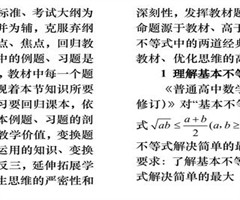 标准、考试大纲为
并为辅，克服弃纲
点、焦点，回归教
中的例题、习题是
，教材中每一个题
现着本节知识所要
习要回归课本，依
本例题、习题的剖
教学价值，变换题
运用的知识、变换
反三，延伸拓展学
生思维的严密性和
深刻性，发挥教材题
命题源于教材、高于
不等式中的两道经典
教材、优化思维的高
1 理解基本不等
《普通高中数学
修订）》对“基本不
式√ab≤(a+b)/2(a，b≥
不等式解决简单的最
要求：了解基本不等
式解决简单的最大